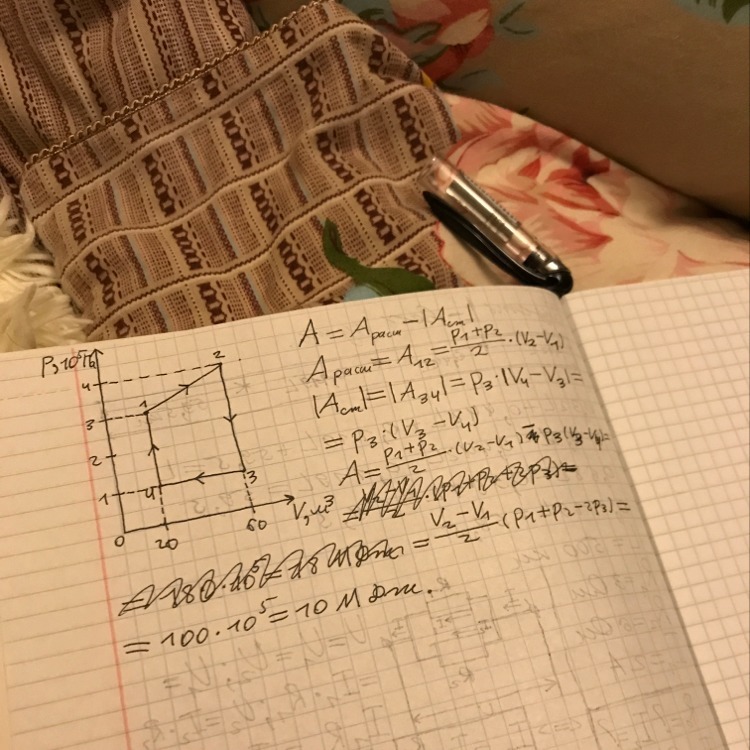 P, 10⁵Па
4
3
2
1
0
20
60
V, м³
1
2
3
4
A = Aрасш - |Aсж|
Aрасш = A₁₂ = (p₁+p₂)/2 · (V₂-V₁)
|Aсж| = |A₃₄| = p₃ · |V₄ - V₃| =
= p₃ · (V₃ - V₄)
A = (p₁+p₂)/2 · (V₂-V₁) - p₃(V₃-V₄) =
= (V₂ - V₁)/2 (p₁+p₂-2p₃) =
= 100 · 10⁵ = 10 М Дж.